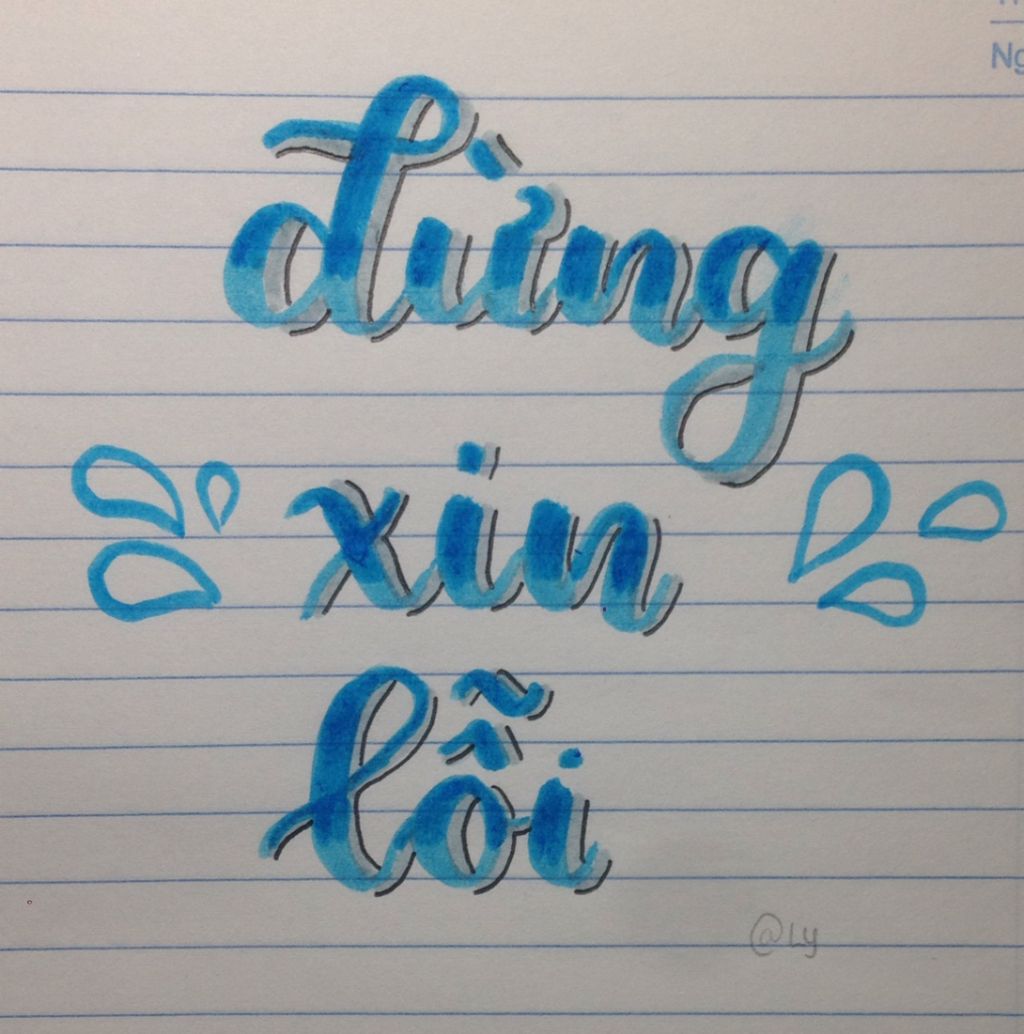 Ng
đừng
xin
lỗi
@Ly